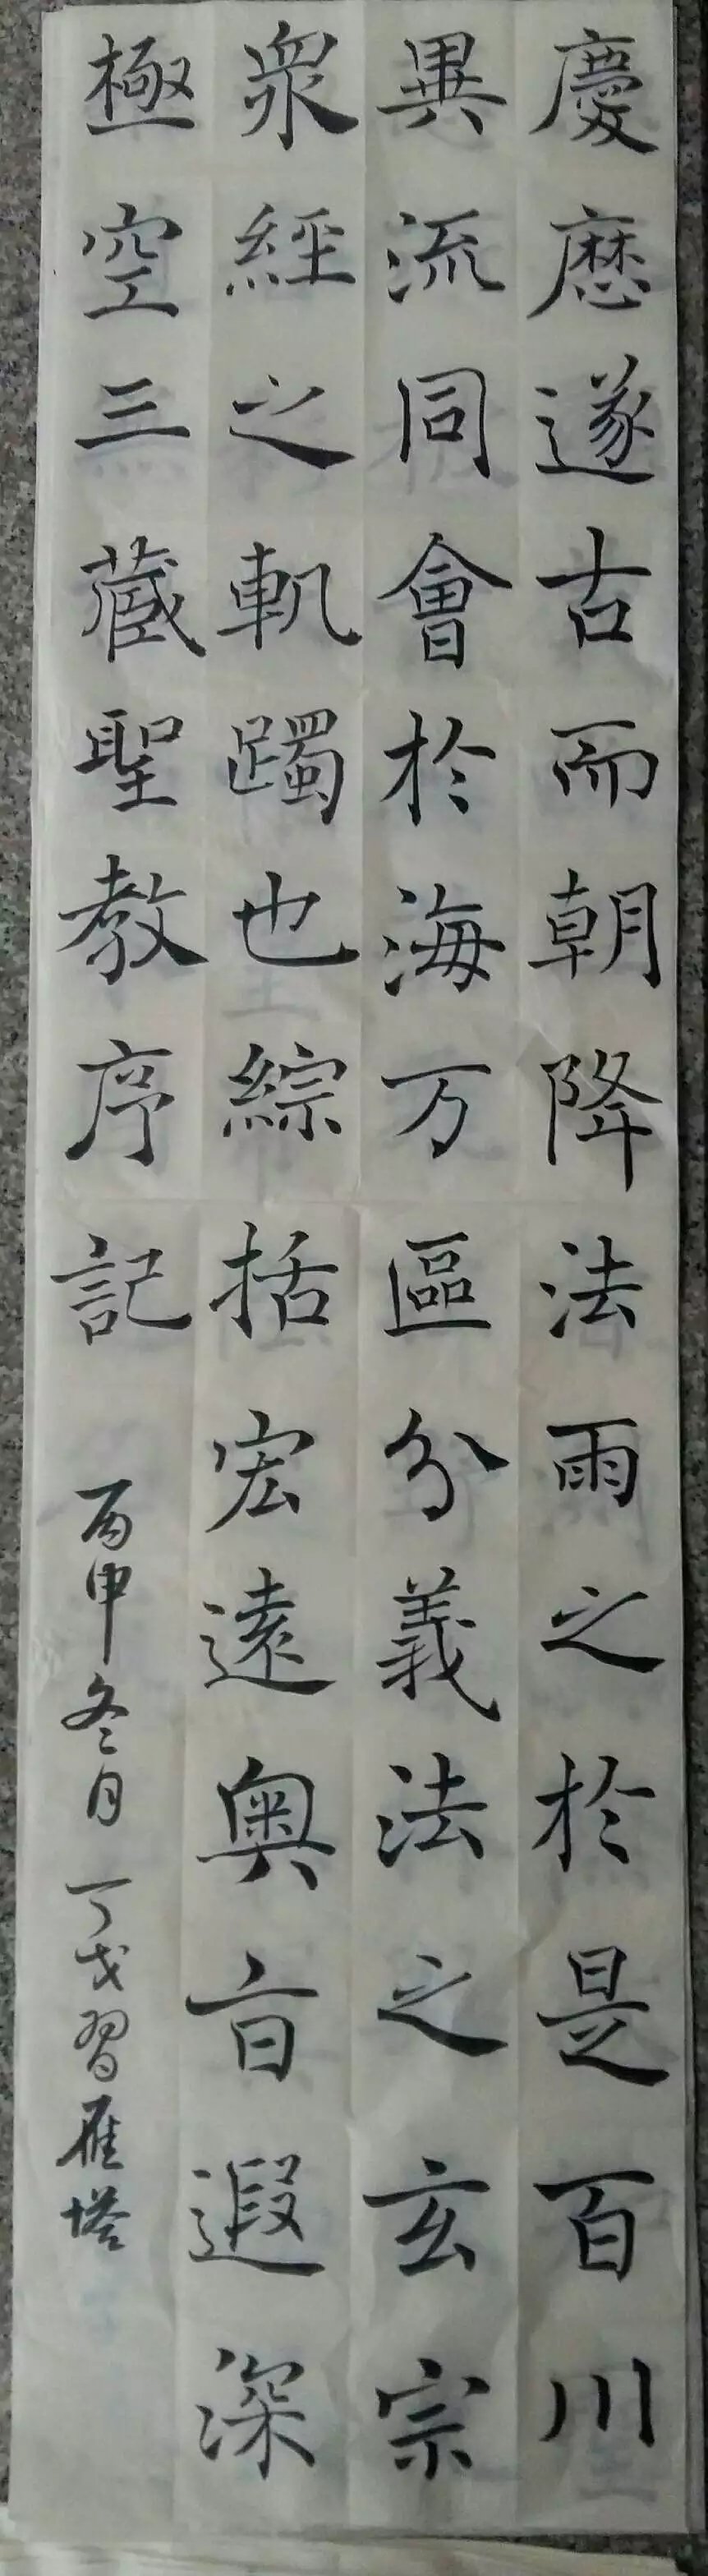 慶厯遂古而朝降法雨之於是百川
異流同會於海万區分義法之玄宗
衆經之軌躅也綜括宏遠奥旨遐深
極空三藏聖教序記
丙申冬月丁戈習雁塔